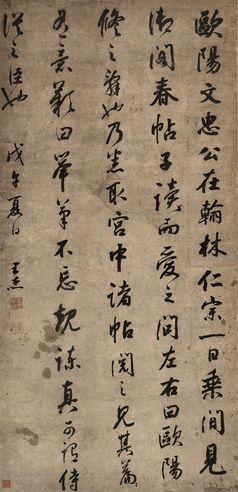 歐陽文忠公在翰林仁宗一日乘間見
御閣春帖子讀而愛之問左右曰歐陽
修之辭也乃悉取宮中諸帖閱之見其篇
有意歎曰舉筆不忘規諫真可謂侍
從之臣也 戊午夏日 王杰